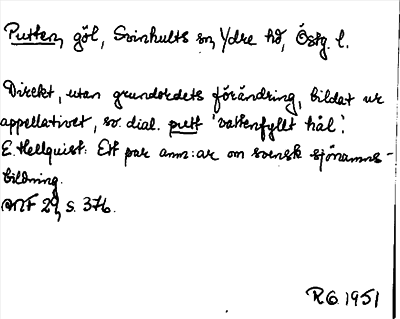 Putten, göl, Svinhults sn, Ydre hd, Östg. l.
Direkt, utan grundordets förändring, bildat ur
appellativet, sv. dial. putt 'vattenfyllt hål'.
E. Hellquist: Ett par anm:ar om svensk sjönamns-
bildning.
ANF 29, s. 376.
R G 1951